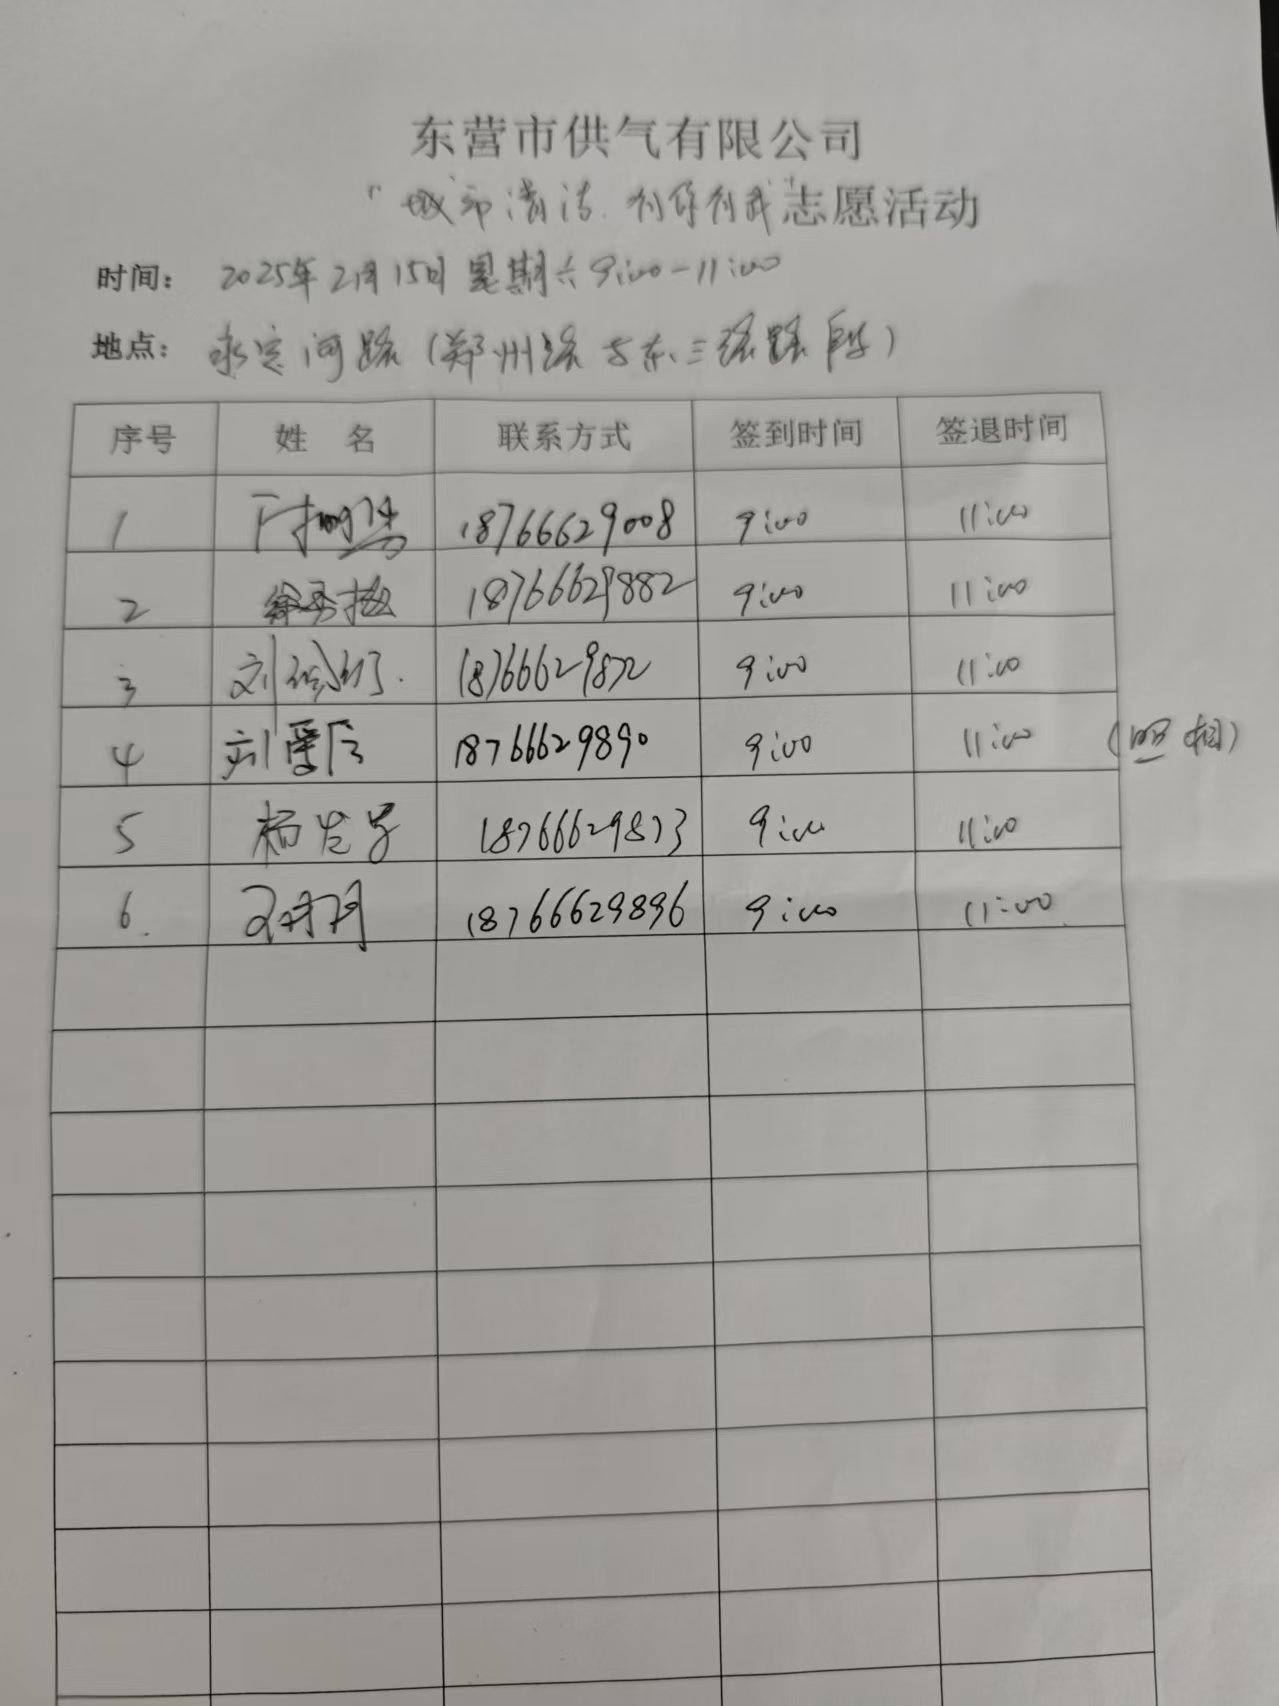 东营市供气有限公司
“城市清洁 有你有我”志愿活动
时间: 2025年2月15日 星期六 9:00-11:00
地点: 永定河路(郑州路与东三路路段)
序号 姓 名 联系方式 签到时间 签退时间
1 18766629008 9:00 11:00
2 徐秀梅 18766629882 9:00 11:00
3 刘 18766629872 9:00 11:00
4 刘爱 18766629890 9:00 11:00 (照相)
5 杨 18766629873 9:00 11:00
6. 18766629896 9:00 11:00